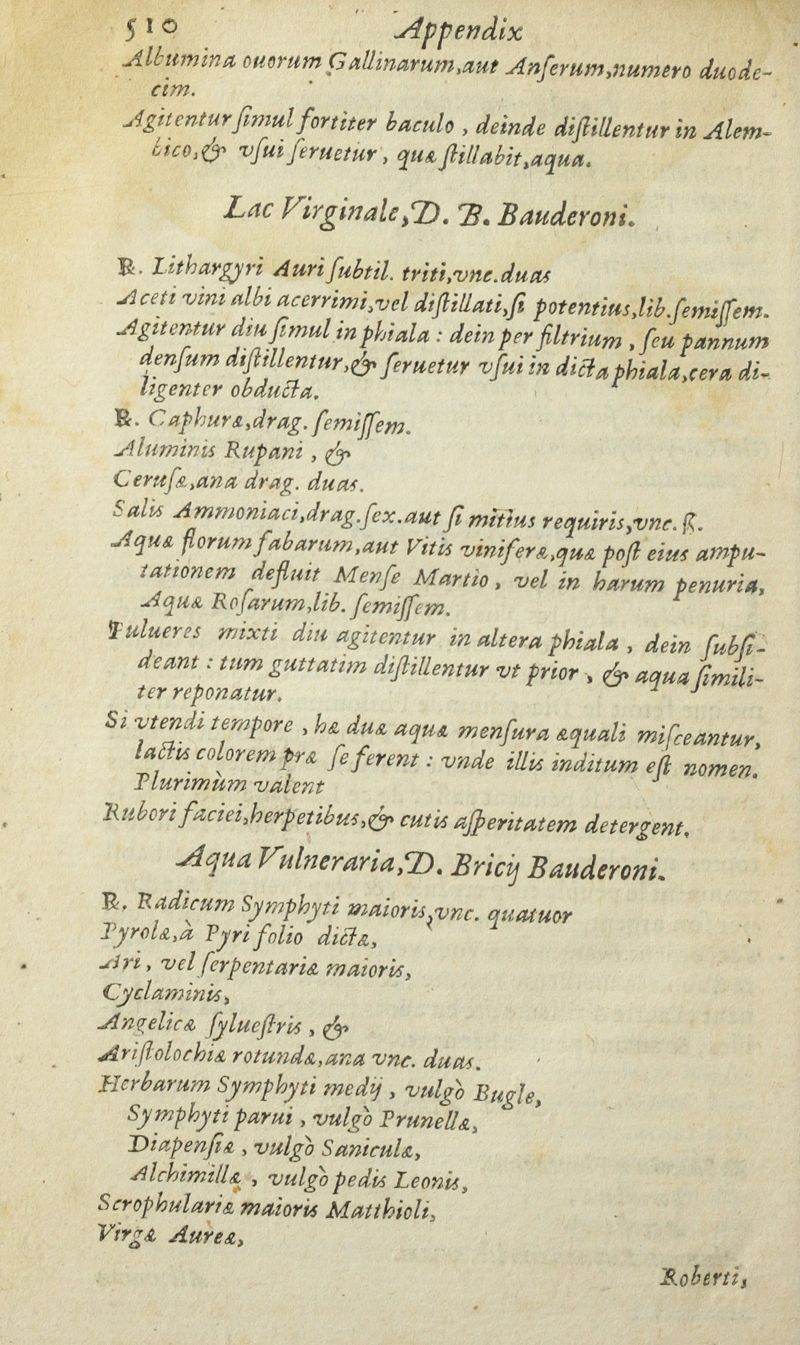 510 Appendix
Albumina ouorum Gallinarum,aut Anſerum,numero duode-
cim.
Agitentur ſimul fortiter baculo , deinde diſtillentur in Alem-
bico,& vſui ſeruetur , quæ ſtillabit,aqua.
Lac Virginale,D. B. Bauderoni.
℞. Lithargyri Auri ſubtil. triti,vnc.duas
Aceti vini albi acerrimi,vel diſtillati,ſi potentius,lib.ſemiſſem.
Agitentur diu ſimul in phiala : dein per filtrium , ſeu pannum
denſum diſtillentur,& ſeruetur vſui in dicta phiala,cera di-
ligenter obducta.
℞. Caphuræ,drag. ſemiſſem.
Aluminis Rupani , &
Ceruſæ,ana drag. duas.
Salis Ammoniaci,drag.ſex.aut ſi mitius requiris,vnc. ß.
Aquæ florum fabarum,aut Vitis viniferæ,quæ poſt eius ampu-
tationem defluit Menſe Martio , vel in harum penuria,
Aquæ Roſarum,lib. ſemiſſem.
Pulueres mixti diu agitentur in altera phiala , dein ſubſi-
deant : tum guttatim diſtillentur vt prior , & aqua ſimili-
ter reponatur.
Si vtendi tempore , hæ duæ aquæ menſura æquali miſceantur,
lactis colorem præ ſe ferent : vnde illis inditum eſt nomen.
Plurimùm valent
Rubori faciei,herpetibus,& cutis aſperitatem detergent.
Aqua Vulneraria,D. Bricij Bauderoni.
℞. Radicum Symphyti maioris,vnc. quatuor
Pyrolæ,à Pyri folio dictæ,
Ari , vel ſerpentariæ maioris,
Cyclaminis,
Angelicæ ſylueſtris , &
Ariſtolochiæ rotundæ,ana vnc. duas.
Herbarum Symphyti medij , vulgò Bugle,
Symphyti parui , vulgò Prunellæ,
Diapenſiæ , vulgò Saniculæ,
Alchimillæ , vulgò pedis Leonis,
Scrophulariæ maioris Matthioli,
Virgæ Aureæ,
Roberti,